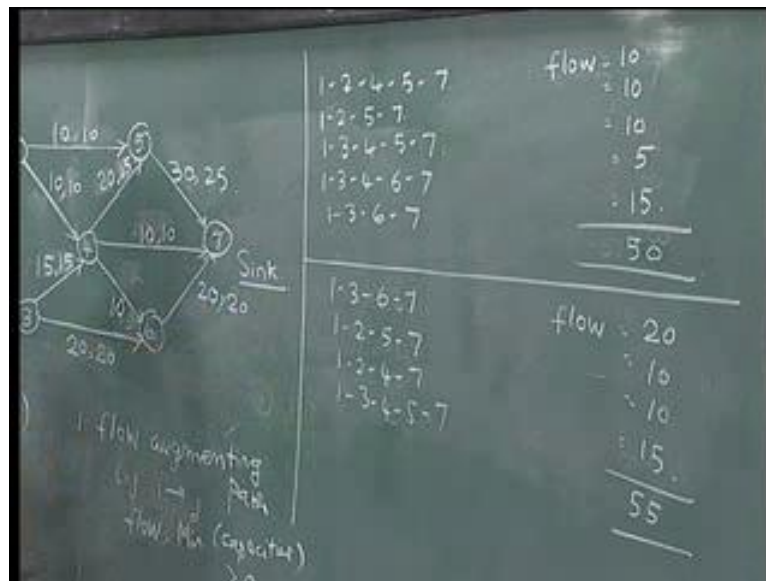 10,10
5
10,10
20,15
30,25
4
10,10
7
15,15
Sink
10
20,20
3
6
20,20
flow augmenting
Path
flow = Min (capacities)
1-2-4-5-7
1-2-5-7
1-3-4-5-7
1-3-4-6-7
1-3-6-7
flow = 10
= 10
= 10
= 5
= 15.
50
1-3-6-7
1-2-5-7
1-2-4-7
1-3-4-5-7
flow = 20
= 10
= 10
= 15.
55